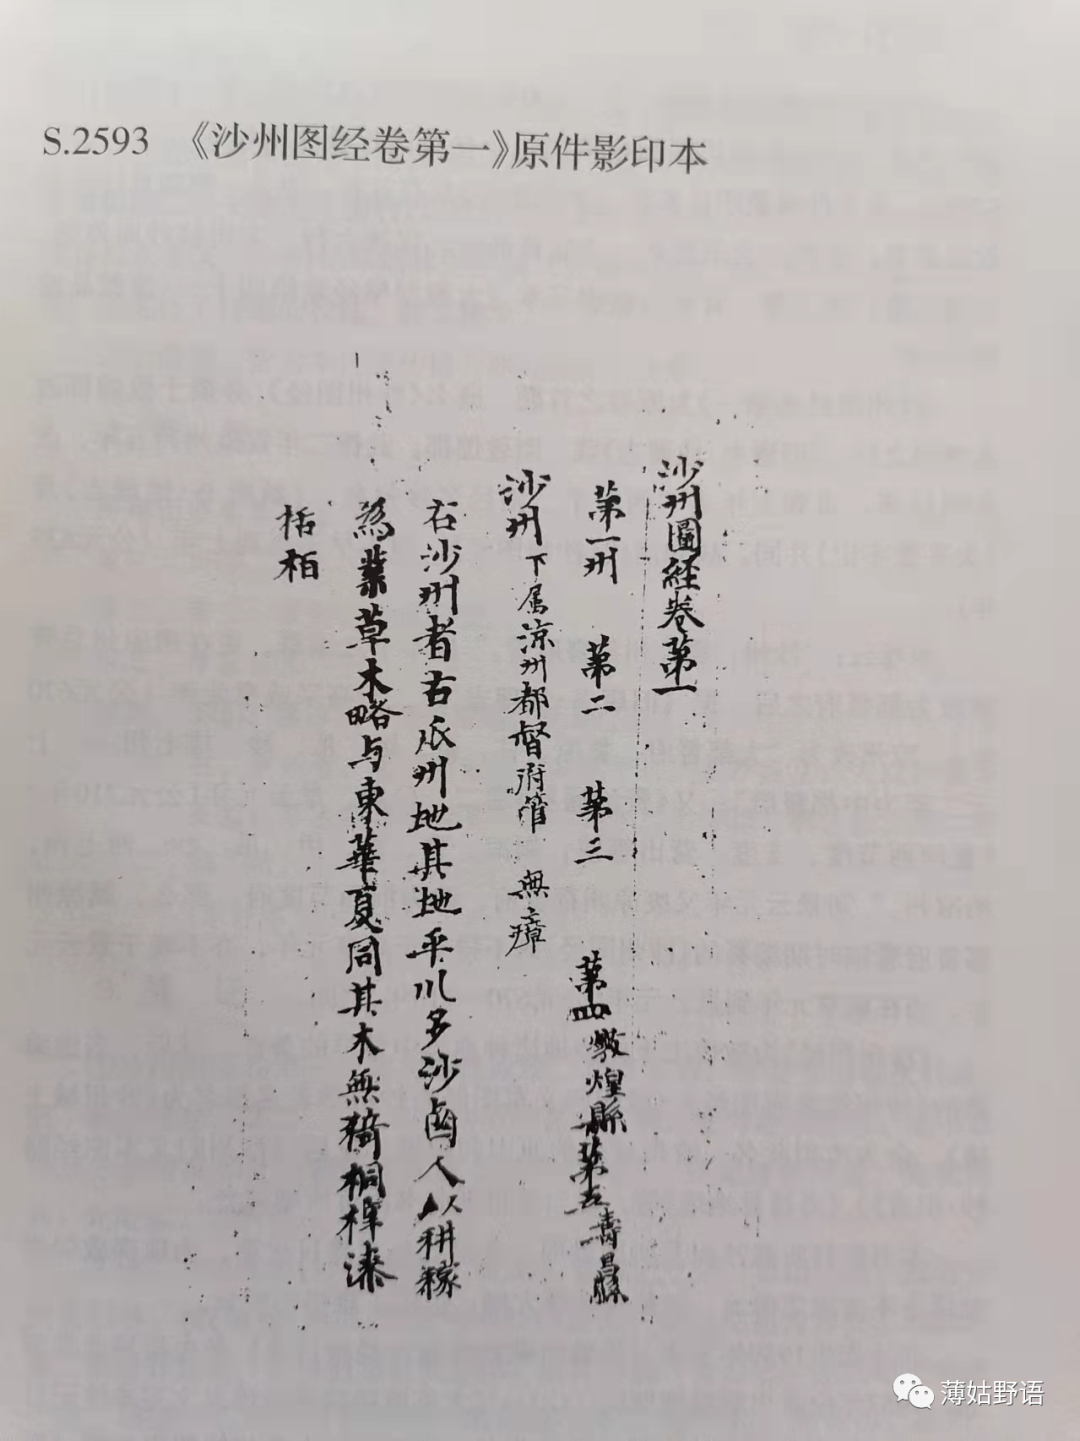 S.2593 《沙州图经卷第一》原件影印本
沙州圖經卷第一
第一州 第二 第三 第四敦煌縣第五壽昌縣
沙州下属涼州都督府管 無瘴
右沙州者古瓜州地其地平川多沙鹵人以耕稼
為業草木略与東華夏同其木無猗桐梓漆
栝柏
薄姑野语